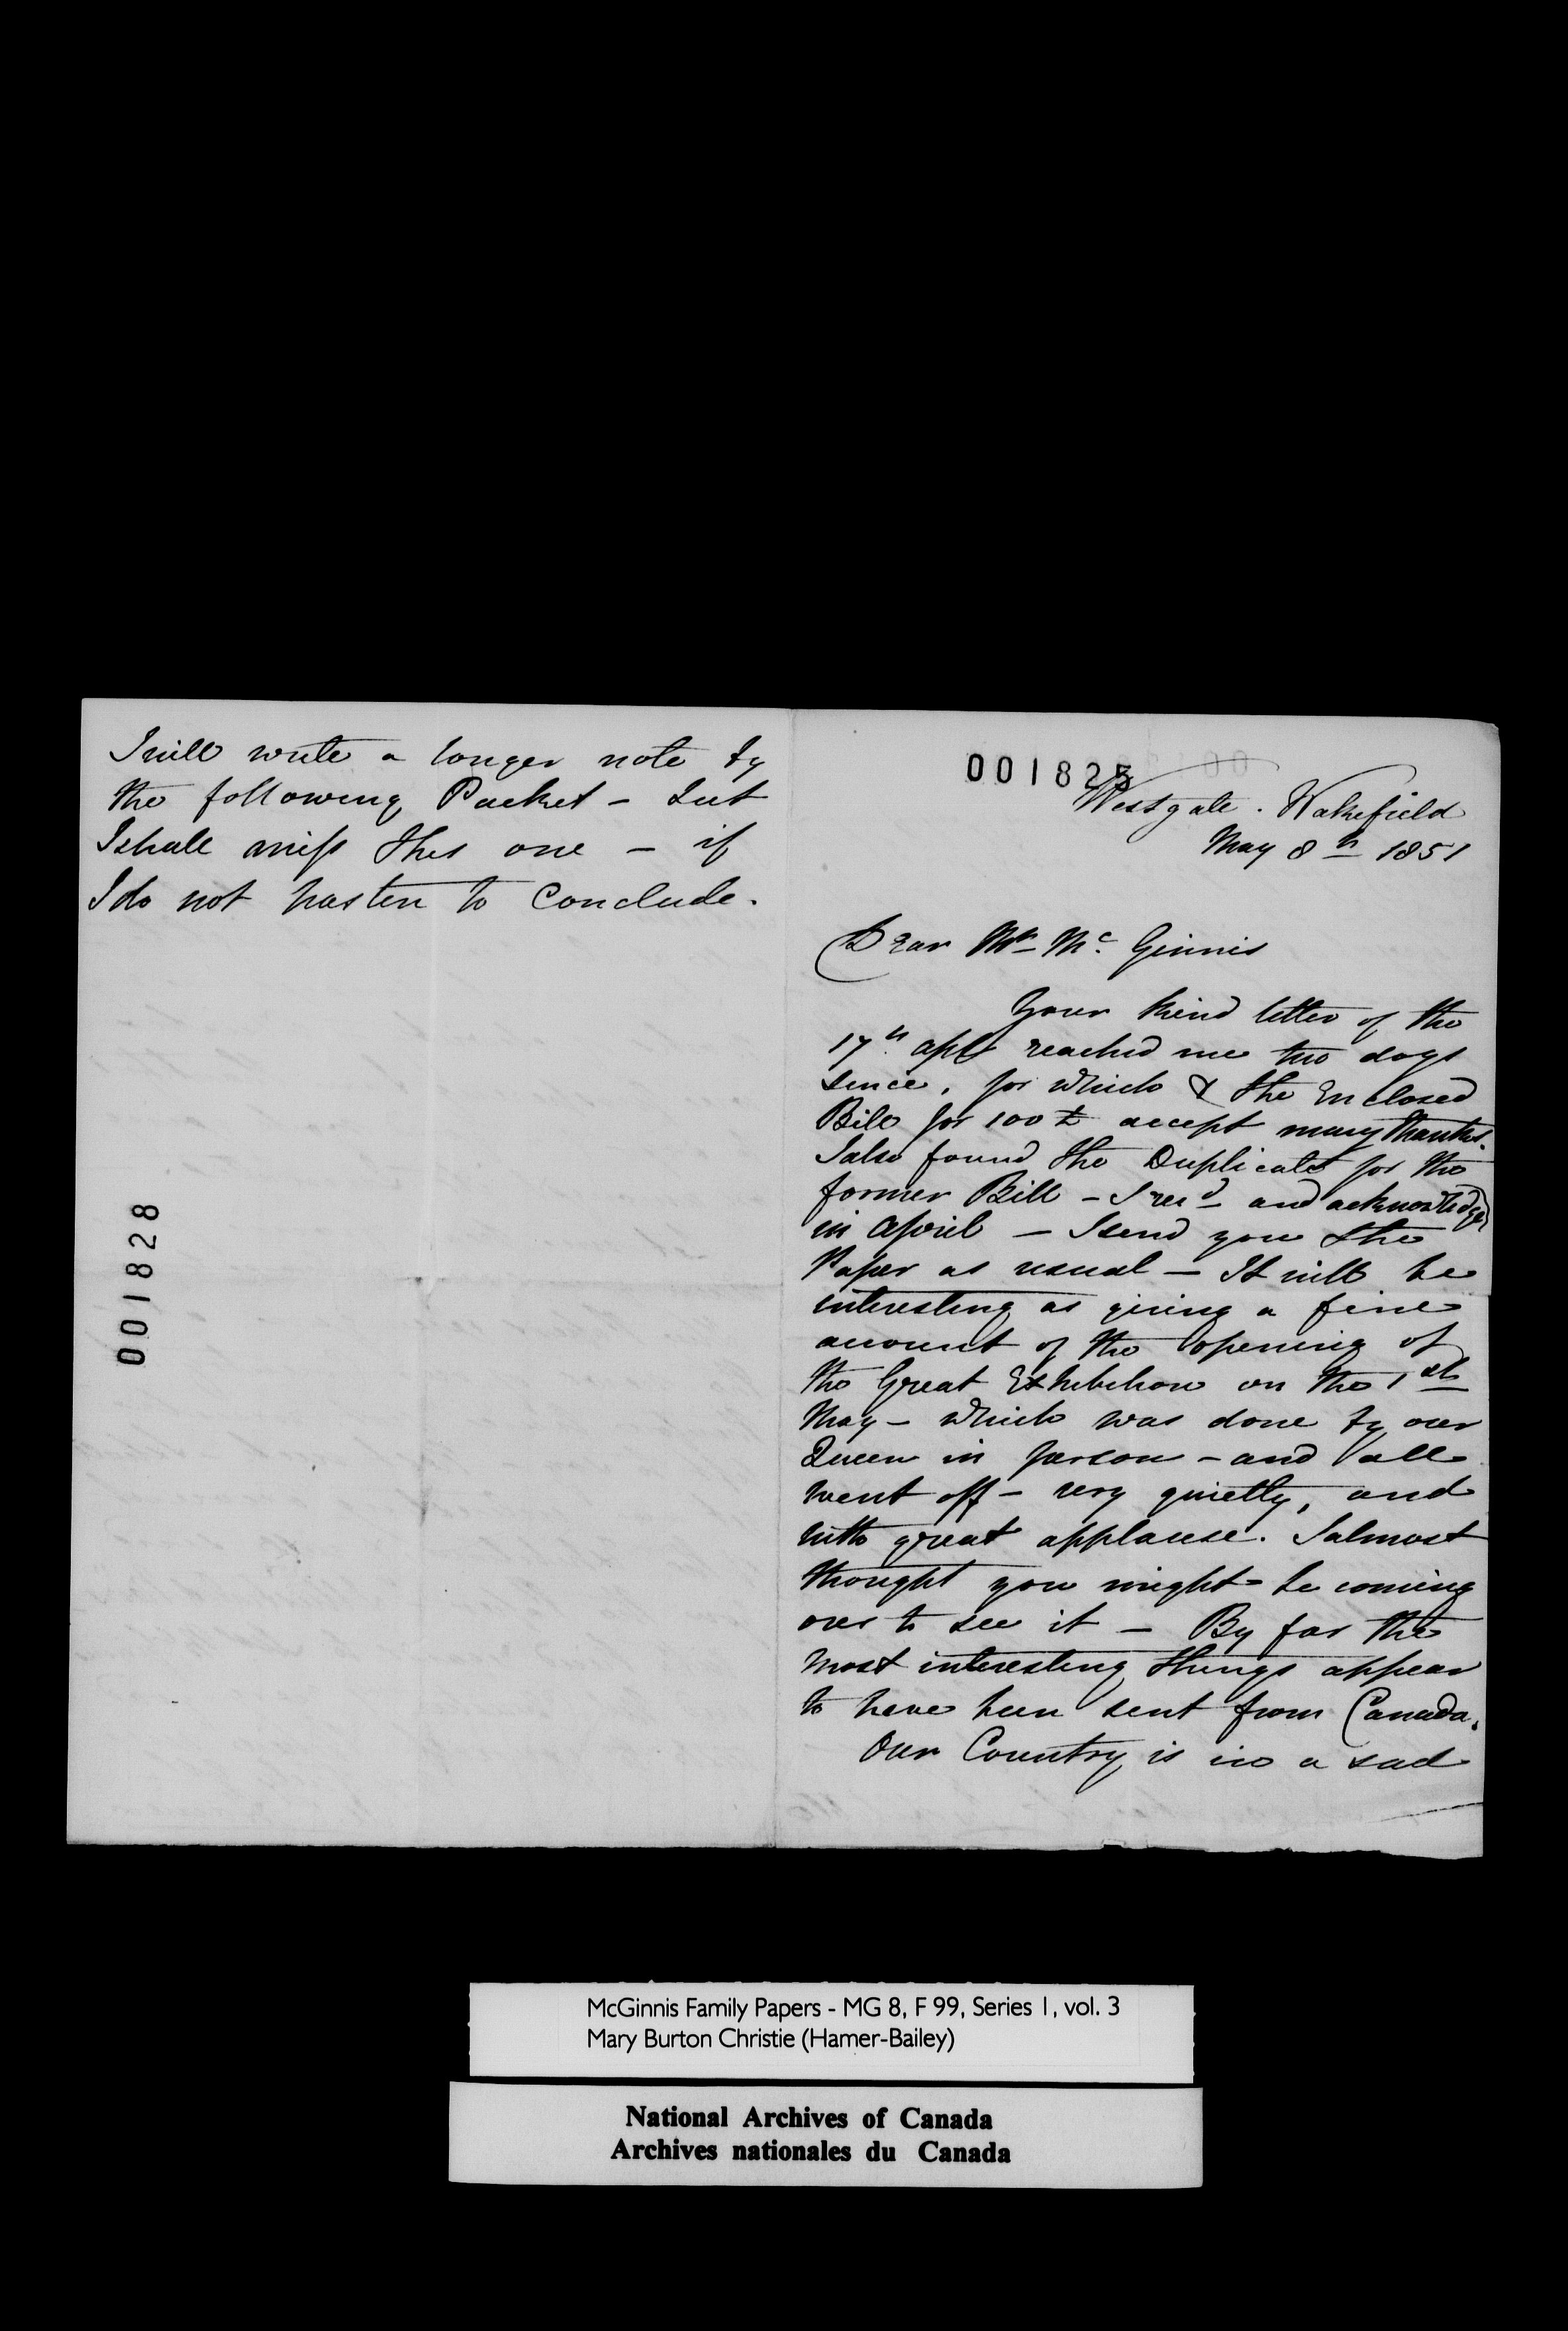 I will write a longer note by
the following Packet - but
I shall miss this one - if
I do not hasten to Conclude.
001828
001825
Westgate. Wakefield
May 8th 1851
Dear Mr Mc Ginnis
Your kind letter of the
17th apl reached me two days
since, for which & the Enclosed
Bill for 100£ accept many thanks.
I also found the Duplicate for the
former Bill - I recd and acknowledged
in April - I send you the
Paper as usual - It will be
interesting as giving a fine
account of the opening of
the Great Exhibition on the 1st
May - which was done by our
Queen in person - and all
went off - very quietly, and
with great applause. I almost
thought you might be coming
over to see it - By far the
most interesting things appear
to have been sent from Canada.
Our Country is in a sad
McGinnis Family Papers - MG 8, F 99, Series 1, vol. 3
Mary Burton Christie (Hamer-Bailey)
National Archives of Canada
Archives nationales du Canada